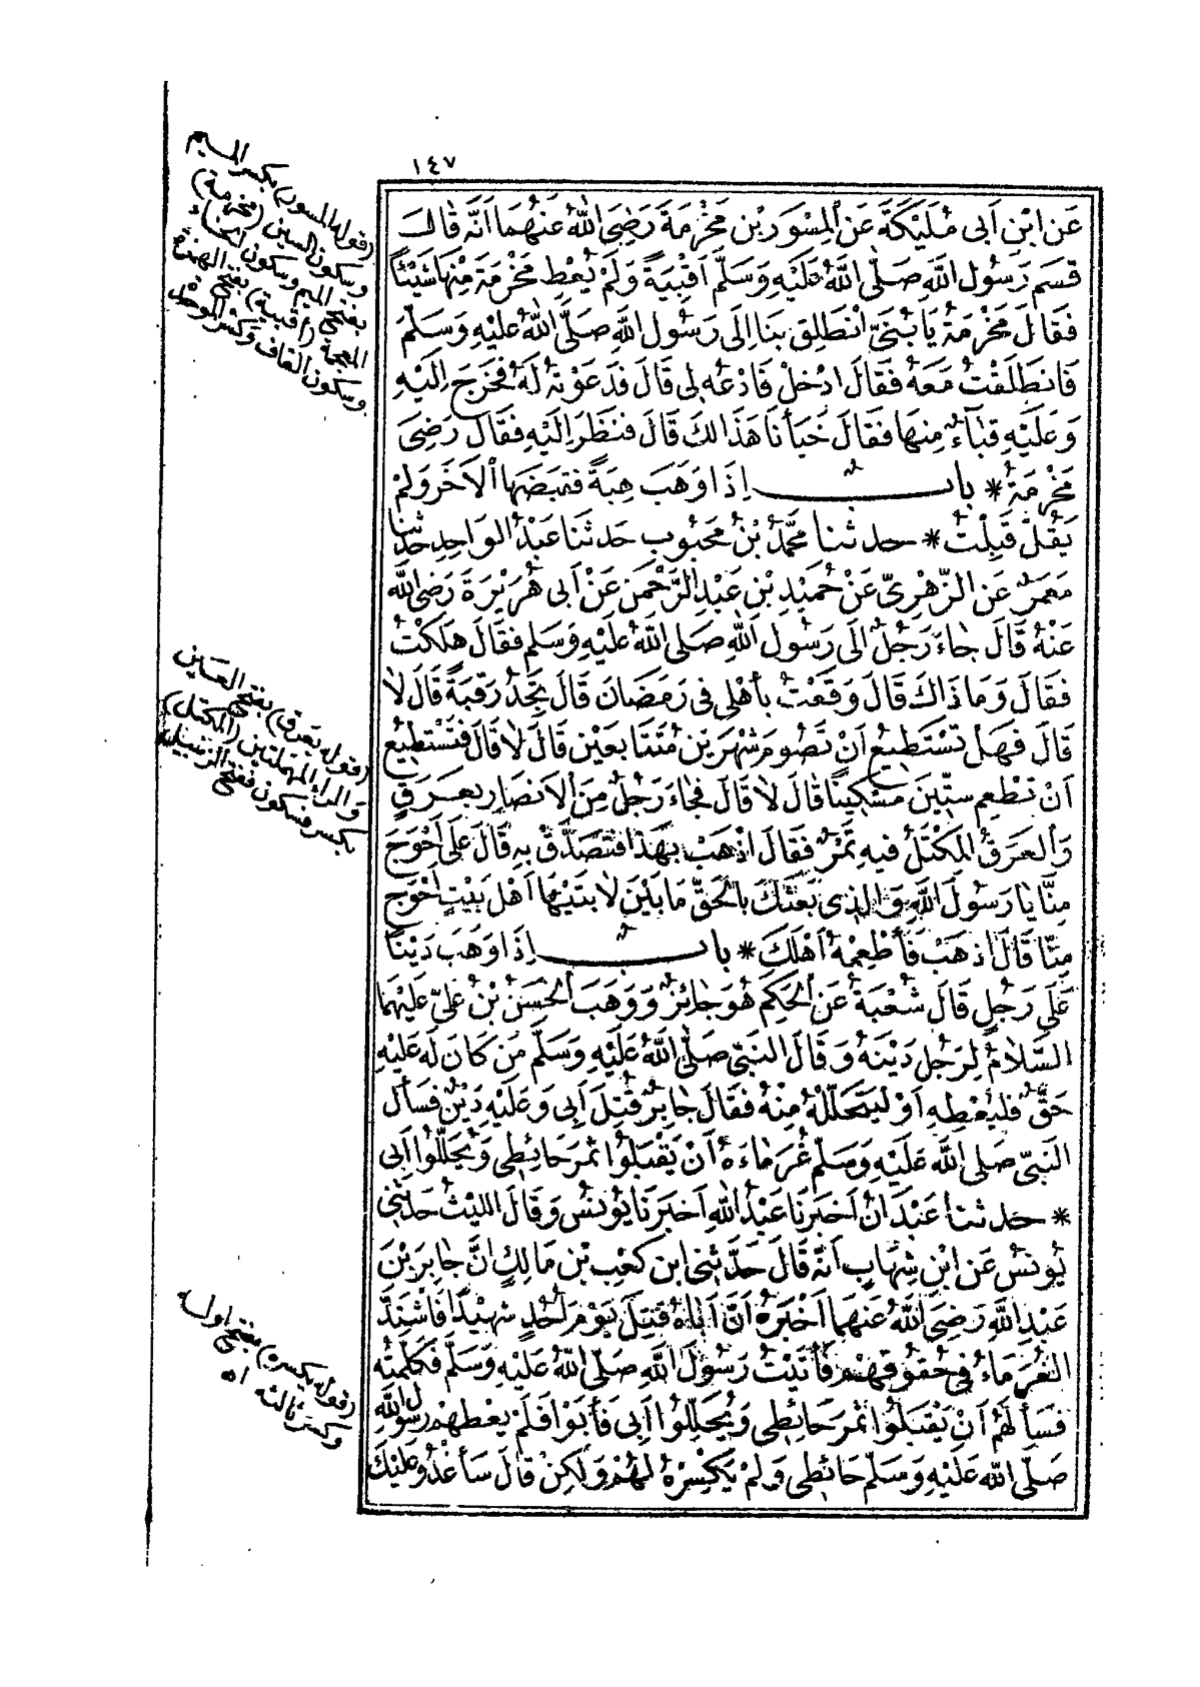 ١٤٧
عَنِ ابْنِ اَبِى مُلَيْكَةَ عَنِ الْمِسْوَرِ بْنِ مَخْرَمَةَ رَضِىَ اللهُ عَنْهُمَا اَنَّهُ قَالَ
قَسَمَ رَسُولُ اللهِ صَلَّى اللهُ عَلَيْهِ وَسَلَّمَ اَقْبِيَةً وَلَمْ يُعْطِ مَخْرَمَةَ مِنْهَا شَيْئًا
فَقَالَ مَخْرَمَةُ يَا بُنَىَّ انْطَلِقْ بِنَا اِلَى رَسُولِ اللهِ صَلَّى اللهُ عَلَيْهِ وَسَلَّمَ
فَانْطَلَقْتُ مَعَهُ فَقَالَ ادْخُلْ فَادْعُهُ لِى قَالَ فَدَعَوْتُهُ لَهُ فَخَرَجَ اِلَيْهِ
وَعَلَيْهِ قَبَاءٌ مِنْهَا فَقَالَ خَبَأْنَا هَذَا لَكَ قَالَ فَنَظَرَ اِلَيْهِ فَقَالَ رَضِىَ
مَخْرَمَةُ * بابٌ اِذَا وَهَبَ هِبَةً فَقَبَضَهَا الْآخَرُ وَلَمْ
يَقُلْ قَبِلْتُ * حدثنا مُحَمَّدُ بْنُ مَحْبُوبٍ حَدثَنَا عَبْدُ الوَاحِدِ حَدثنا
مَعْمَرٌ عَنِ الزُّهْرِىِّ عَنْ حُمَيْدِ بْنِ عَبْدِ الرَّحْمَنِ عَنْ اَبِى هُرَيْرَةَ رَضِىَ اللهُ
عَنْهُ قَالَ جَاءَ رَجُلٌ اِلَى رَسُولِ اللهِ صَلَى اللهُ عَلَيْهِ وَسَلم فَقَالَ هَلَكْتُ
فَقَالَ وَمَا ذَاكَ قَالَ وَقَعْتُ بِأَهْلِى فِى رَمَضَانَ قَالَ تَجِدُ رَقَبَةً قَالَ لَا
قَالَ فَهَلْ تَسْتَطِيعُ اَنْ تَصُومَ شَهْرَيْنِ مُتَتَابِعَيْنِ قَالَ لَا قَالَ فَتَسْتَطِيعُ
اَنْ تُطْعِمَ سِتِّينَ مِسْكِينًا قَالَ لَا قَالَ فَجَاءَ رَجُلٌ مِنَ الْاَنْصَارِ بِعَرَقٍ
وَالْعَرَقُ الْمِكْتَلُ فِيهِ تَمْرٌ فَقَالَ اذْهَبْ بِهَذَا فَتَصَدَّقْ بِهِ قَالَ عَلَى اَحْوَجَ
مِنَّا يَا رَسُولَ اللهِ وَالَّذِى بَعَثَكَ بِالْحَقِّ مَا بَيْنَ لَابَتَيْهَا اَهْلُ بَيْتٍ اَحْوَجُ
مِنّا قَالَ اذهَبْ فَأَطْعِمْهُ اَهْلَكَ * بابٌ اِذَا وَهَبَ دَيْنًا
عَلَى رَجُلٍ قَالَ شُعْبَةُ عَنِ الْحَكَمِ هُوَ جَائِزٌ وَوَهَبَ الْحَسَنُ بْنُ عَلِىٍّ عَلَيْهِمَا
السَّلَامُ لِرَجُلٍ دَيْنَهُ وَقَالَ النَّبِىُّ صَلَّى اللهُ عَلَيْهِ وَسَلَّمَ مَنْ كَانَ لَهُ عَلَيْهِ
حَقٌّ فَليُعْطِهِ اَوْ لِيَتَحَلَّلْهُ مِنْهُ فَقَالَ جَابِرٌ قُتِلَ اَبِى وَعَلَيْهِ دَيْنٌ فَسَأَلَ
النَّبِىُّ صَلَى اللهُ عَلَيْهِ وَسَلَّمَ غُرَمَاءَهُ اَنْ يَقْبَلُوا ثَمَرَ حَائِطِى وَيُحَلِّلُوا اَبِى
* حدثنا عَبْدَانُ اَخبَرَنَا عَبْدُ اللهِ اَخبَرَنَا يُونُسُ وَقَالَ اللَّيْثُ حَدثَنِى
يُونُسُ عَنِ ابْنِ شِهَابٍ اَنَّهُ قَالَ حَدَّثَنِى ابنُ كَعْبِ بْنِ مَالِكٍ اَنَّ جَابِرَ بْنَ
عَبْدِ اللهِ رَضِىَ اللهُ عَنْهُمَا اَخْبَرَهُ اَنَّ اَبَاهُ قُتِلَ يَوْمَ اُحُدٍ شَهِيْدًا فَاشْتَدَّ
الغُرَمَاءُ فِى حُقُوقِهِمْ فَأَتَيْتُ رَسُولَ اللهِ صَلَّى اللهُ عَلَيْهِ وَسَلَّمَ فَكَلَّمْتُهُ
فَسَأَلَهُمْ اَنْ يَقْبَلُوا ثَمَرَ حَائِطِى وَيُحَلِّلُوا اَبِى فَأَبَوْا فَلَمْ يُعْطِهِمْ رَسُولُ اللهِ
صَلَّى اللهُ عَلَيْهِ وَسَلَّمَ حَائِطِى وَلَمْ يَكْسِرْهُ لَهُمْ وَلَكِنْ قَالَ سَأَغْدُو عَلَيْكَ
(قوله المسور) بكسر الميم
وسكون السين (مخرمة)
بفتح الميم وسكون الخاء
المعجمة (أقبية) بفتح الهمزة
وسكون القاف وكسر الموحدة
(قوله بعرق) بفتح العين
والراء المهملتين (المكتل)
بكسر فسكون ففتح الزنبيل
(قوله يكسره) بفتح أوله
وكسر ثالثه اه